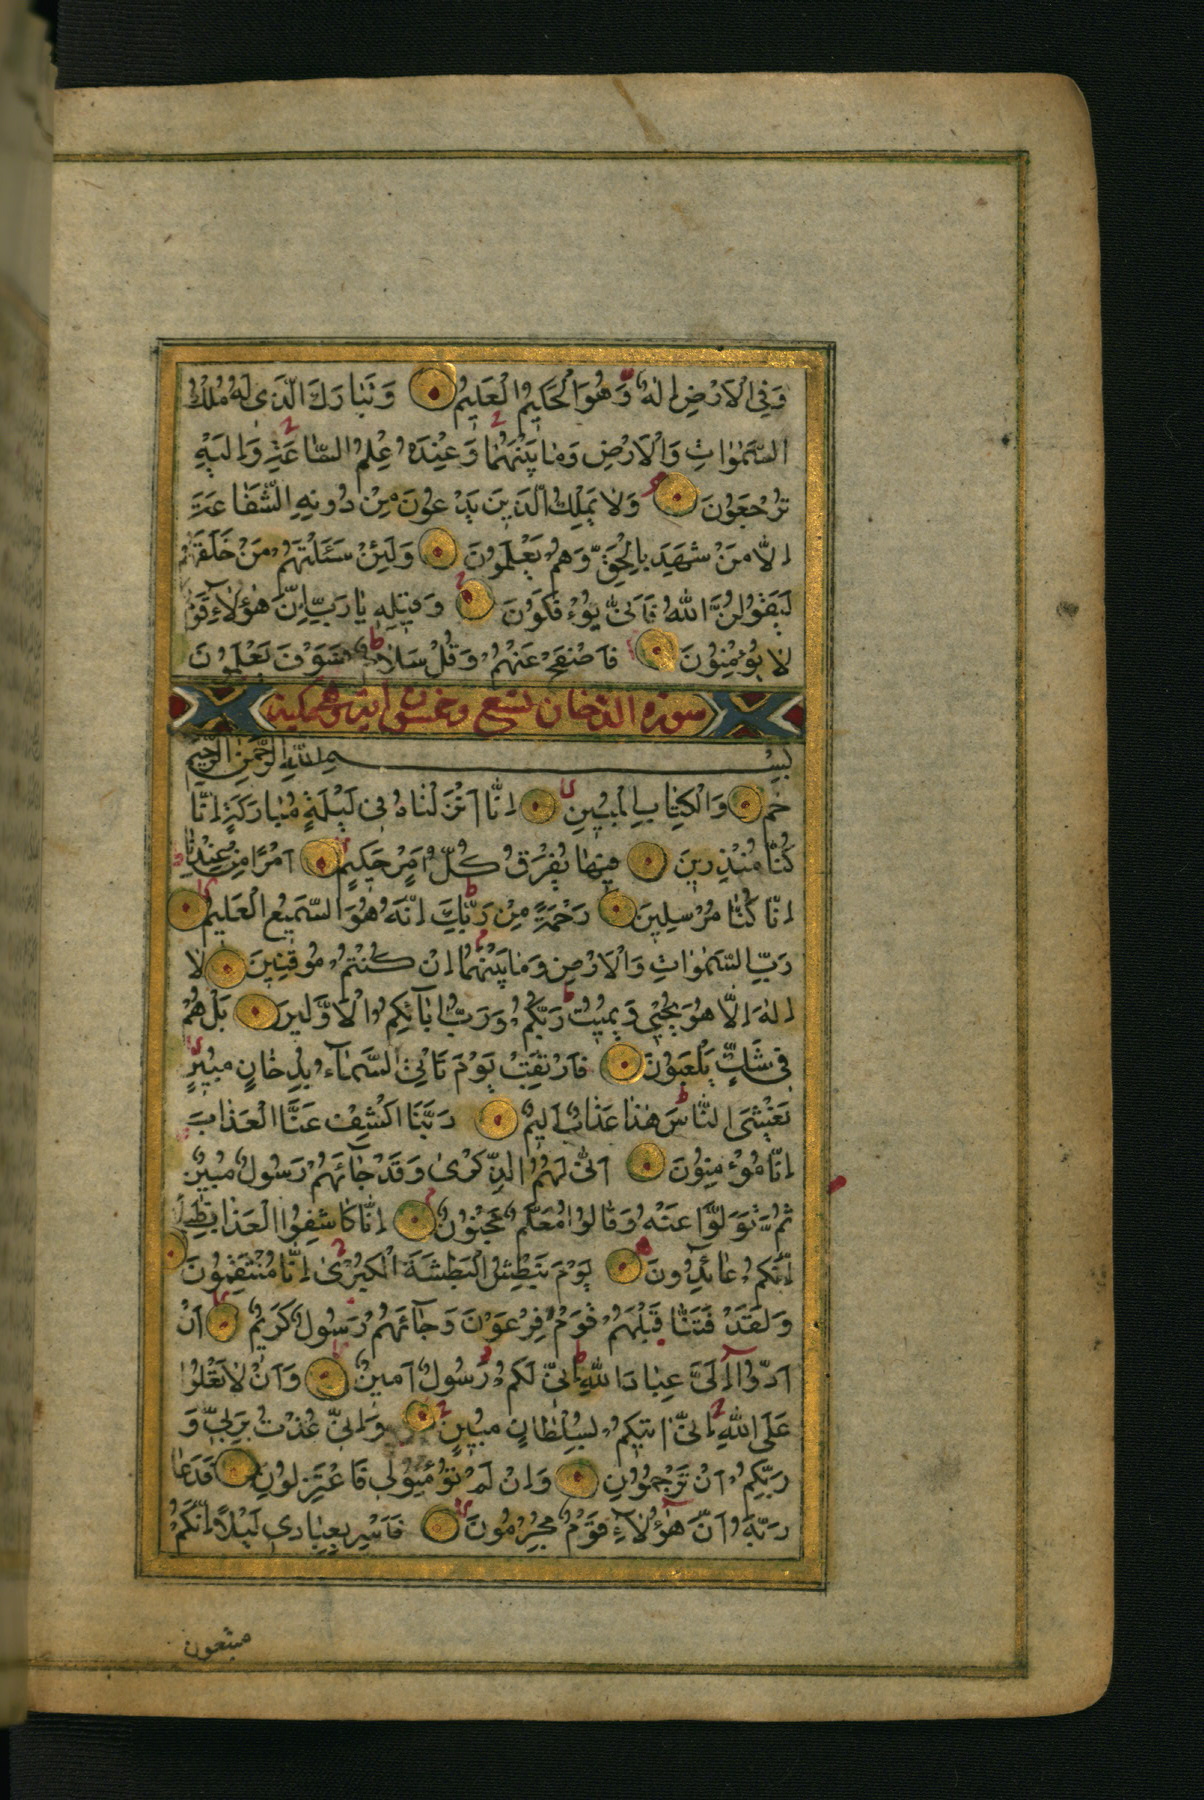 وَفِي الْاَرْضِ اِلٰهٌ وَهُوَ الْحَكِيمُ الْعَلِيمُ وَتَبَارَكَ الَّذِي لَهُ مُلْكُ
السَّمٰوَاتِ وَالْاَرْضِ وَمَا بَيْنَهُمَا وَعِنْدَهُ عِلْمُ السَّاعَةِ وَاِلَيْهِ
تُرْجَعُونَ وَلَا يَمْلِكُ الَّذِينَ يَدْعُونَ مِنْ دُونِهِ الشَّفَاعَةَ
اِلَّا مَنْ شَهِدَ بِالْحَقِّ وَهُمْ يَعْلَمُونَ وَلَئِنْ سَئَلْتَهُمْ مَنْ خَلَقَهُمْ
لَيَقُولُنَّ اللّٰهُ فَاَنّٰى يُؤْفَكُونَ وَقِيلِهِ يَا رَبِّ اِنَّ هٰؤُلَاءِ قَوْمٌ
لَا يُؤْمِنُونَ فَاصْفَحْ عَنْهُمْ وَقُلْ سَلَامٌ فَسَوْفَ يَعْلَمُونَ
سورة الدخان تسع وخمسون آية وهي مكية
بِسْمِ اللّٰهِ الرَّحْمٰنِ الرَّحِيمِ
حٰمٓ وَالْكِتَابِ الْمُبِينِ اِنَّا اَنْزَلْنَاهُ فِي لَيْلَةٍ مُبَارَكَةٍ اِنَّا
كُنَّا مُنْذِرِينَ فِيهَا يُفْرَقُ كُلُّ اَمْرٍ حَكِيمٍ اَمْرًا مِنْ عِنْدِنَا
اِنَّا كُنَّا مُرْسِلِينَ رَحْمَةً مِنْ رَبِّكَ اِنَّهُ هُوَ السَّمِيعُ الْعَلِيمُ
رَبِّ السَّمٰوَاتِ وَالْاَرْضِ وَمَا بَيْنَهُمَا اِنْ كُنْتُمْ مُوقِنِينَ لَا
اِلٰهَ اِلَّا هُوَ يُحْيِي وَيُمِيتُ رَبُّكُمْ وَرَبُّ اٰبَآئِكُمُ الْاَوَّلِينَ بَلْ هُمْ
فِي شَكٍّ يَلْعَبُونَ فَارْتَقِبْ يَوْمَ تَاْتِي السَّمَآءُ بِدُخَانٍ مُبِينٍ
يَغْشَى النَّاسَ هٰذَا عَذَابٌ اَلِيمٌ رَبَّنَا اكْشِفْ عَنَّا الْعَذَابَ
اِنَّا مُؤْمِنُونَ اَنّٰى لَهُمُ الذِّكْرٰى وَقَدْ جَآئَهُمْ رَسُولٌ مُبِينٌ
ثُمَّ تَوَلَّوْا عَنْهُ وَقَالُوا مُعَلَّمٌ مَجْنُونٌ اِنَّا كَاشِفُوا الْعَذَابِ قَلِيلًا
اِنَّكُمْ عَآئِدُونَ يَوْمَ نَبْطِشُ الْبَطْشَةَ الْكُبْرٰى اِنَّا مُنْتَقِمُونَ
وَلَقَدْ فَتَنَّا قَبْلَهُمْ قَوْمَ فِرْعَوْنَ وَجَآئَهُمْ رَسُولٌ كَرِيمٌ اَنْ
اَدُّوا اِلَيَّ عِبَادَ اللّٰهِ اِنِّي لَكُمْ رَسُولٌ اَمِينٌ وَاَنْ لَا تَعْلُوا
عَلَى اللّٰهِ اِنِّي اٰتِيكُمْ بِسُلْطَانٍ مُبِينٍ وَاِنِّي عُذْتُ بِرَبِّي وَ
رَبِّكُمْ اَنْ تَرْجُمُونِ وَاِنْ لَمْ تُؤْمِنُوا لِي فَاعْتَزِلُونِ فَدَعَا
رَبَّهُ اَنَّ هٰؤُلَآءِ قَوْمٌ مُجْرِمُونَ فَاَسْرِ بِعِبَادِي لَيْلًا اِنَّكُمْ
متبعون